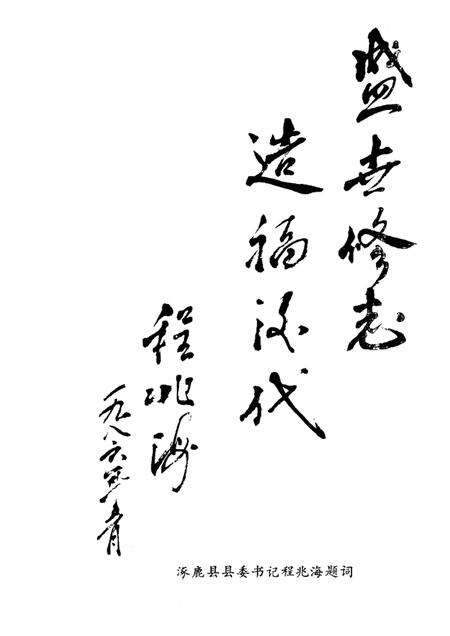 盛世修志
造福後代
程兆海
一九八六年五月
涿鹿县县委书记程兆海题词